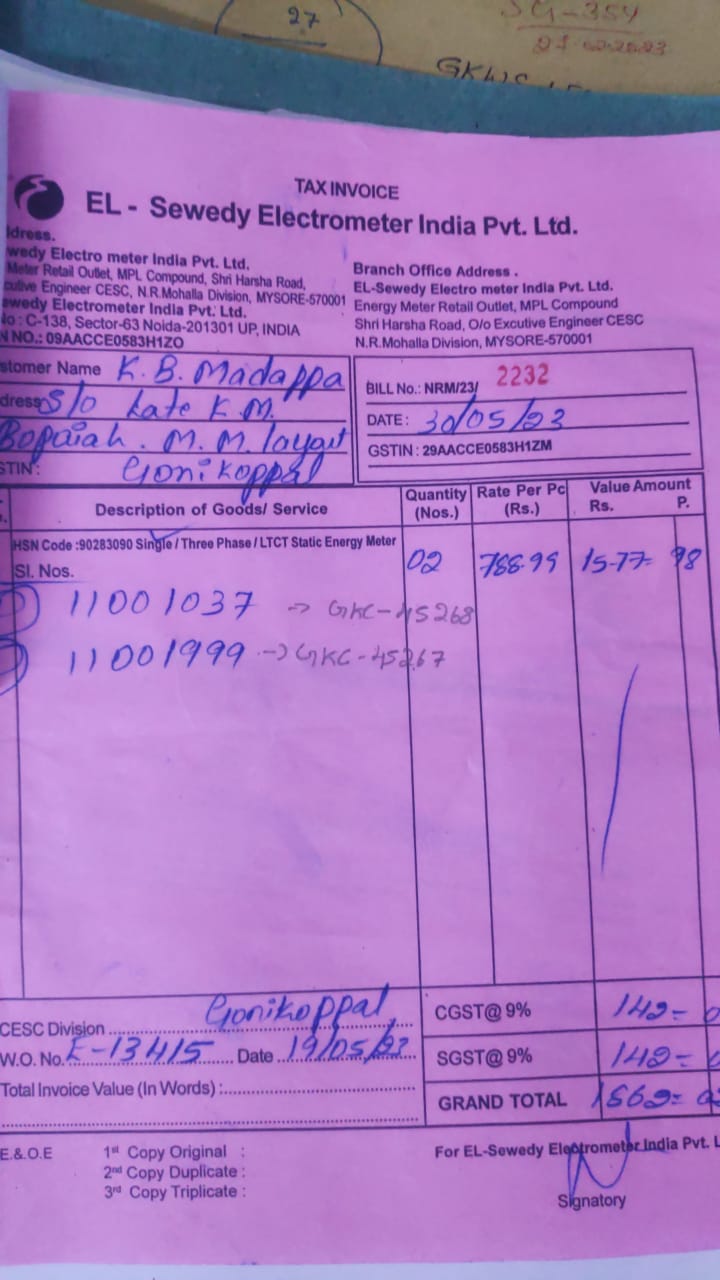 27
SG-354
27-02-2023
TAX INVOICE
EL - Sewedy Electrometer India Pvt. Ltd.
ddress.
wedy Electro meter India Pvt. Ltd.
Meter Retail Outlet, MPL Compound, Shri Harsha Road,
cutive Engineer CESC, N.R.Mohalla Division, MYSORE-570001
ewedy Electrometer India Pvt. Ltd.
No : C-138, Sector-63 Noida-201301 UP, INDIA
N NO.: 09AACCE0583H1ZO
Branch Office Address .
EL-Sewedy Electro meter India Pvt. Ltd.
Energy Meter Retail Outlet, MPL Compound
Shri Harsha Road, O/o Excutive Engineer CESC
N.R.Mohalla Division, MYSORE-570001
stomer Name K. B. Madappa
dress S/o Late K.M.
Bopaiah. M. M. layout
STIN : Gonikoppal
BILL No.: NRM/23/ 2232
DATE : 30/05/23
GSTIN : 29AACCE0583H1ZM
Description of Goods/ Service Quantity (Nos.) Rate Per Pc (Rs.) Value Amount Rs. P.
HSN Code :90283090 Single / Three Phase / LTCT Static Energy Meter 02 788-99 1577- 98
Sl. Nos.
11001037 -> GKC-45268
11001999 -> GKC-45267
CESC Division Gonikoppal
W.O. No. E-13415 Date 19/05/23
Total Invoice Value (In Words) :
CGST@ 9% 142-
SGST@ 9% 142-
GRAND TOTAL 1862-
E.& O.E
1st Copy Original :
2nd Copy Duplicate :
3rd Copy Triplicate :
For EL-Sewedy Electrometer India Pvt. L
Signatory